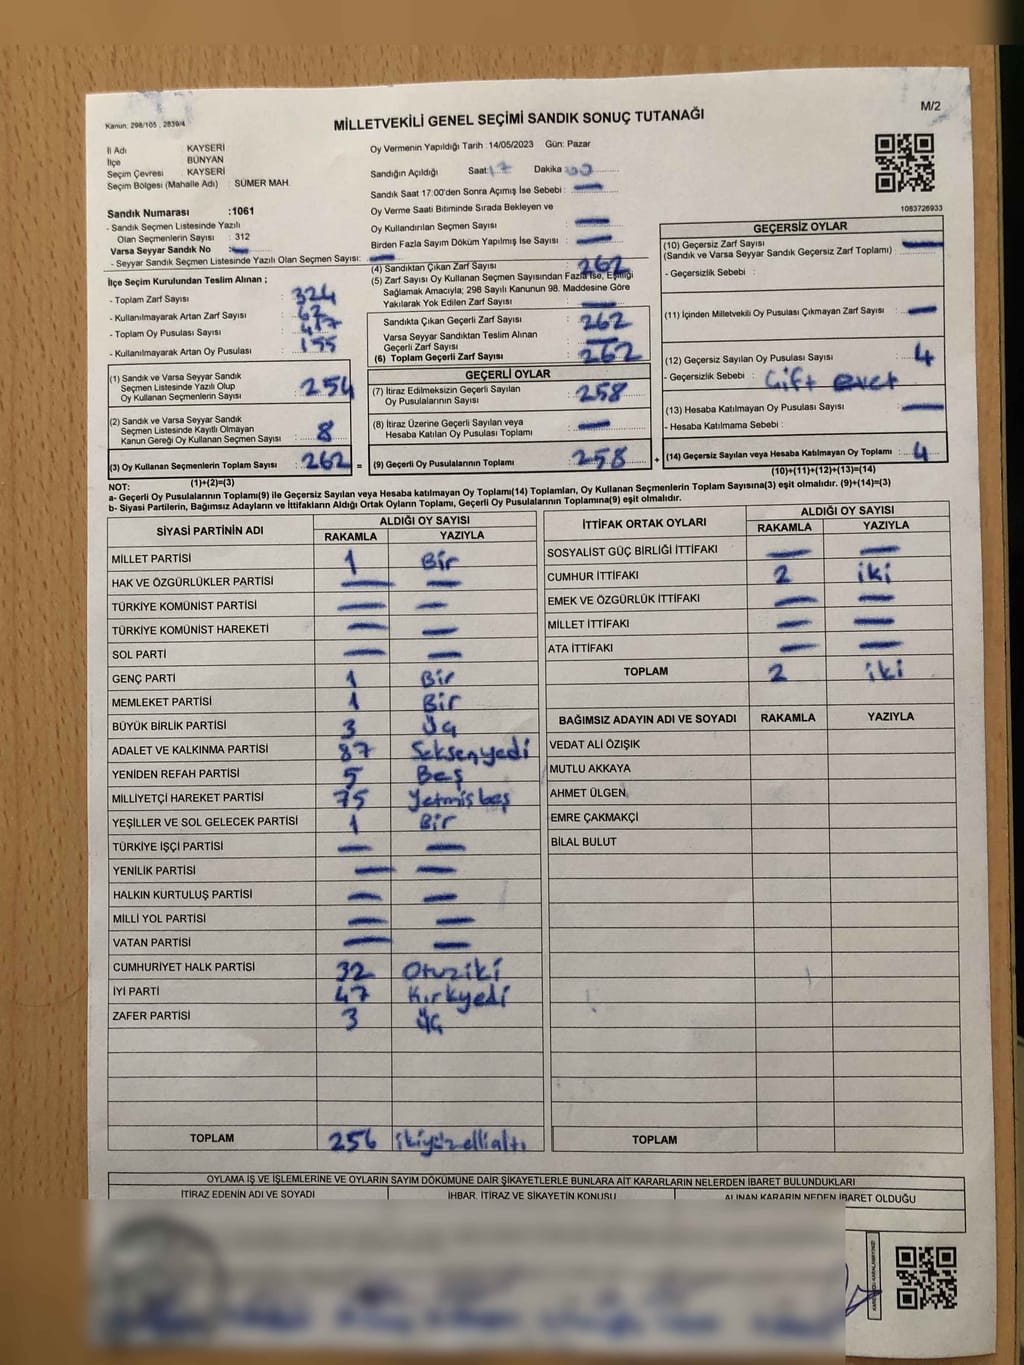 Kanun: 298/105 , 2839/4
M/2
MİLLETVEKİLİ GENEL SEÇİMİ SANDIK SONUÇ TUTANAĞI
İl Adı KAYSERİ
İlçe BÜNYAN
Seçim Çevresi KAYSERİ
Seçim Bölgesi (Mahalle Adı) SÜMER MAH.
Sandık Numarası :1061
- Sandık Seçmen Listesinde Yazılı
Olan Seçmenlerin Sayısı : 312
Varsa Seyyar Sandık No :
- Seyyar Sandık Seçmen Listesinde Yazılı Olan Seçmen Sayısı:
İlçe Seçim Kurulundan Teslim Alınan ;
- Toplam Zarf Sayısı : 324
- Kullanılmayarak Artan Zarf Sayısı : 62
- Toplam Oy Pusulası Sayısı : 417
- Kullanılmayarak Artan Oy Pusulası : 155
(1) Sandık ve Varsa Seyyar Sandık
Seçmen Listesinde Yazılı Olup
Oy Kullanan Seçmenlerin Sayısı : 254
(2) Sandık ve Varsa Seyyar Sandık
Seçmen Listesinde Kayıtlı Olmayan
Kanun Gereği Oy Kullanan Seçmen Sayısı : 8
(3) Oy Kullanan Seçmenlerin Toplam Sayısı : 262 =
(1)+(2)=(3)
Oy Vermenin Yapıldığı Tarih : 14/05/2023 Gün: Pazar
Sandığın Açıldığı Saat: 17 Dakika
Sandık Saat 17:00'den Sonra Açımış İse Sebebi :
Oy Verme Saati Bitiminde Sırada Bekleyen ve
Oy Kullandırılan Seçmen Sayısı :
Birden Fazla Sayım Döküm Yapılmış İse Sayısı :
(4) Sandıktan Çıkan Zarf Sayısı : 262
(5) Zarf Sayısı Oy Kullanan Seçmen Sayısından Fazla İse, Eşitliği
Sağlamak Amacıyla; 298 Sayılı Kanunun 98. Maddesine Göre
Yakılarak Yok Edilen Zarf Sayısı :
Sandıkta Çıkan Geçerli Zarf Sayısı : 262
Varsa Seyyar Sandıktan Teslim Alınan
Geçerli Zarf Sayısı :
(6) Toplam Geçerli Zarf Sayısı : 262
GEÇERLİ OYLAR
(7) İtiraz Edilmeksizin Geçerli Sayılan
Oy Pusulalarının Sayısı : 258
(8) İtiraz Üzerine Geçerli Sayılan veya
Hesaba Katılan Oy Pusulası Toplamı :
(9) Geçerli Oy Pusulalarının Toplamı : 258 +
1083726933
GEÇERSİZ OYLAR
(10) Geçersiz Zarf Sayısı :
(Sandık ve Varsa Seyyar Sandık Geçersiz Zarf Toplamı)
- Geçersizlik Sebebi :
(11) İçinden Milletvekili Oy Pusulası Çıkmayan Zarf Sayısı :
(12) Geçersiz Sayılan Oy Pusulası Sayısı : 4
- Geçersizlik Sebebi : Çift evet
(13) Hesaba Katılmayan Oy Pusulası Sayısı :
- Hesaba Katılmama Sebebi :
(14) Geçersiz Sayılan veya Hesaba Katılmayan Oy Toplamı : 4
(10)+(11)+(12)+(13)=(14)
NOT:
a- Geçerli Oy Pusulalarının Toplamı(9) ile Geçersiz Sayılan veya Hesaba katılmayan Oy Toplamı(14) Toplamları, Oy Kullanan Seçmenlerin Toplam Sayısına(3) eşit olmalıdır. (9)+(14)=(3)
b- Siyasi Partilerin, Bağımsız Adayların ve İttifakların Aldığı Ortak Oyların Toplamı, Geçerli Oy Pusulalarının Toplamına(9) eşit olmalıdır.
SİYASİ PARTİNİN ADI ALDIĞI OY SAYISI
RAKAMLA YAZIYLA
MİLLET PARTİSİ 1 Bir
HAK VE ÖZGÜRLÜKLER PARTİSİ
TÜRKİYE KOMÜNİST PARTİSİ
TÜRKİYE KOMÜNİST HAREKETİ
SOL PARTİ
GENÇ PARTİ 1 Bir
MEMLEKET PARTİSİ 1 Bir
BÜYÜK BİRLİK PARTİSİ 3 Üç
ADALET VE KALKINMA PARTİSİ 87 Seksenyedi
YENİDEN REFAH PARTİSİ 5 Beş
MİLLİYETÇİ HAREKET PARTİSİ 75 Yetmişbeş
YEŞİLLER VE SOL GELECEK PARTİSİ 1 Bir
TÜRKİYE İŞÇİ PARTİSİ
YENİLİK PARTİSİ
HALKIN KURTULUŞ PARTİSİ
MİLLİ YOL PARTİSİ
VATAN PARTİSİ
CUMHURİYET HALK PARTİSİ 32 Otuziki
İYİ PARTİ 47 Kırkyedi
ZAFER PARTİSİ 3 Üç
TOPLAM 256 ikiyüzellialtı
İTTİFAK ORTAK OYLARI ALDIĞI OY SAYISI
RAKAMLA YAZIYLA
SOSYALİST GÜÇ BİRLİĞİ İTTİFAKI
CUMHUR İTTİFAKI 2 iki
EMEK VE ÖZGÜRLÜK İTTİFAKI
MİLLET İTTİFAKI
ATA İTTİFAKI
TOPLAM 2 iki
BAĞIMSIZ ADAYIN ADI VE SOYADI RAKAMLA YAZIYLA
VEDAT ALİ ÖZIŞIK
MUTLU AKKAYA
AHMET ÜLGEN
EMRE ÇAKMAKÇİ
BİLAL BULUT
TOPLAM
OYLAMA İŞ VE İŞLEMLERİNE VE OYLARIN SAYIM DÖKÜMÜNE DAİR ŞİKAYETLERLE BUNLARA AİT KARARLARIN NELERDEN İBARET BULUNDUKLARI
İTİRAZ EDENİN ADI VE SOYADI İHBAR, İTİRAZ VE ŞİKAYETİN KONUSU ALINAN KARARIN NEDEN İBARET OLDUĞU